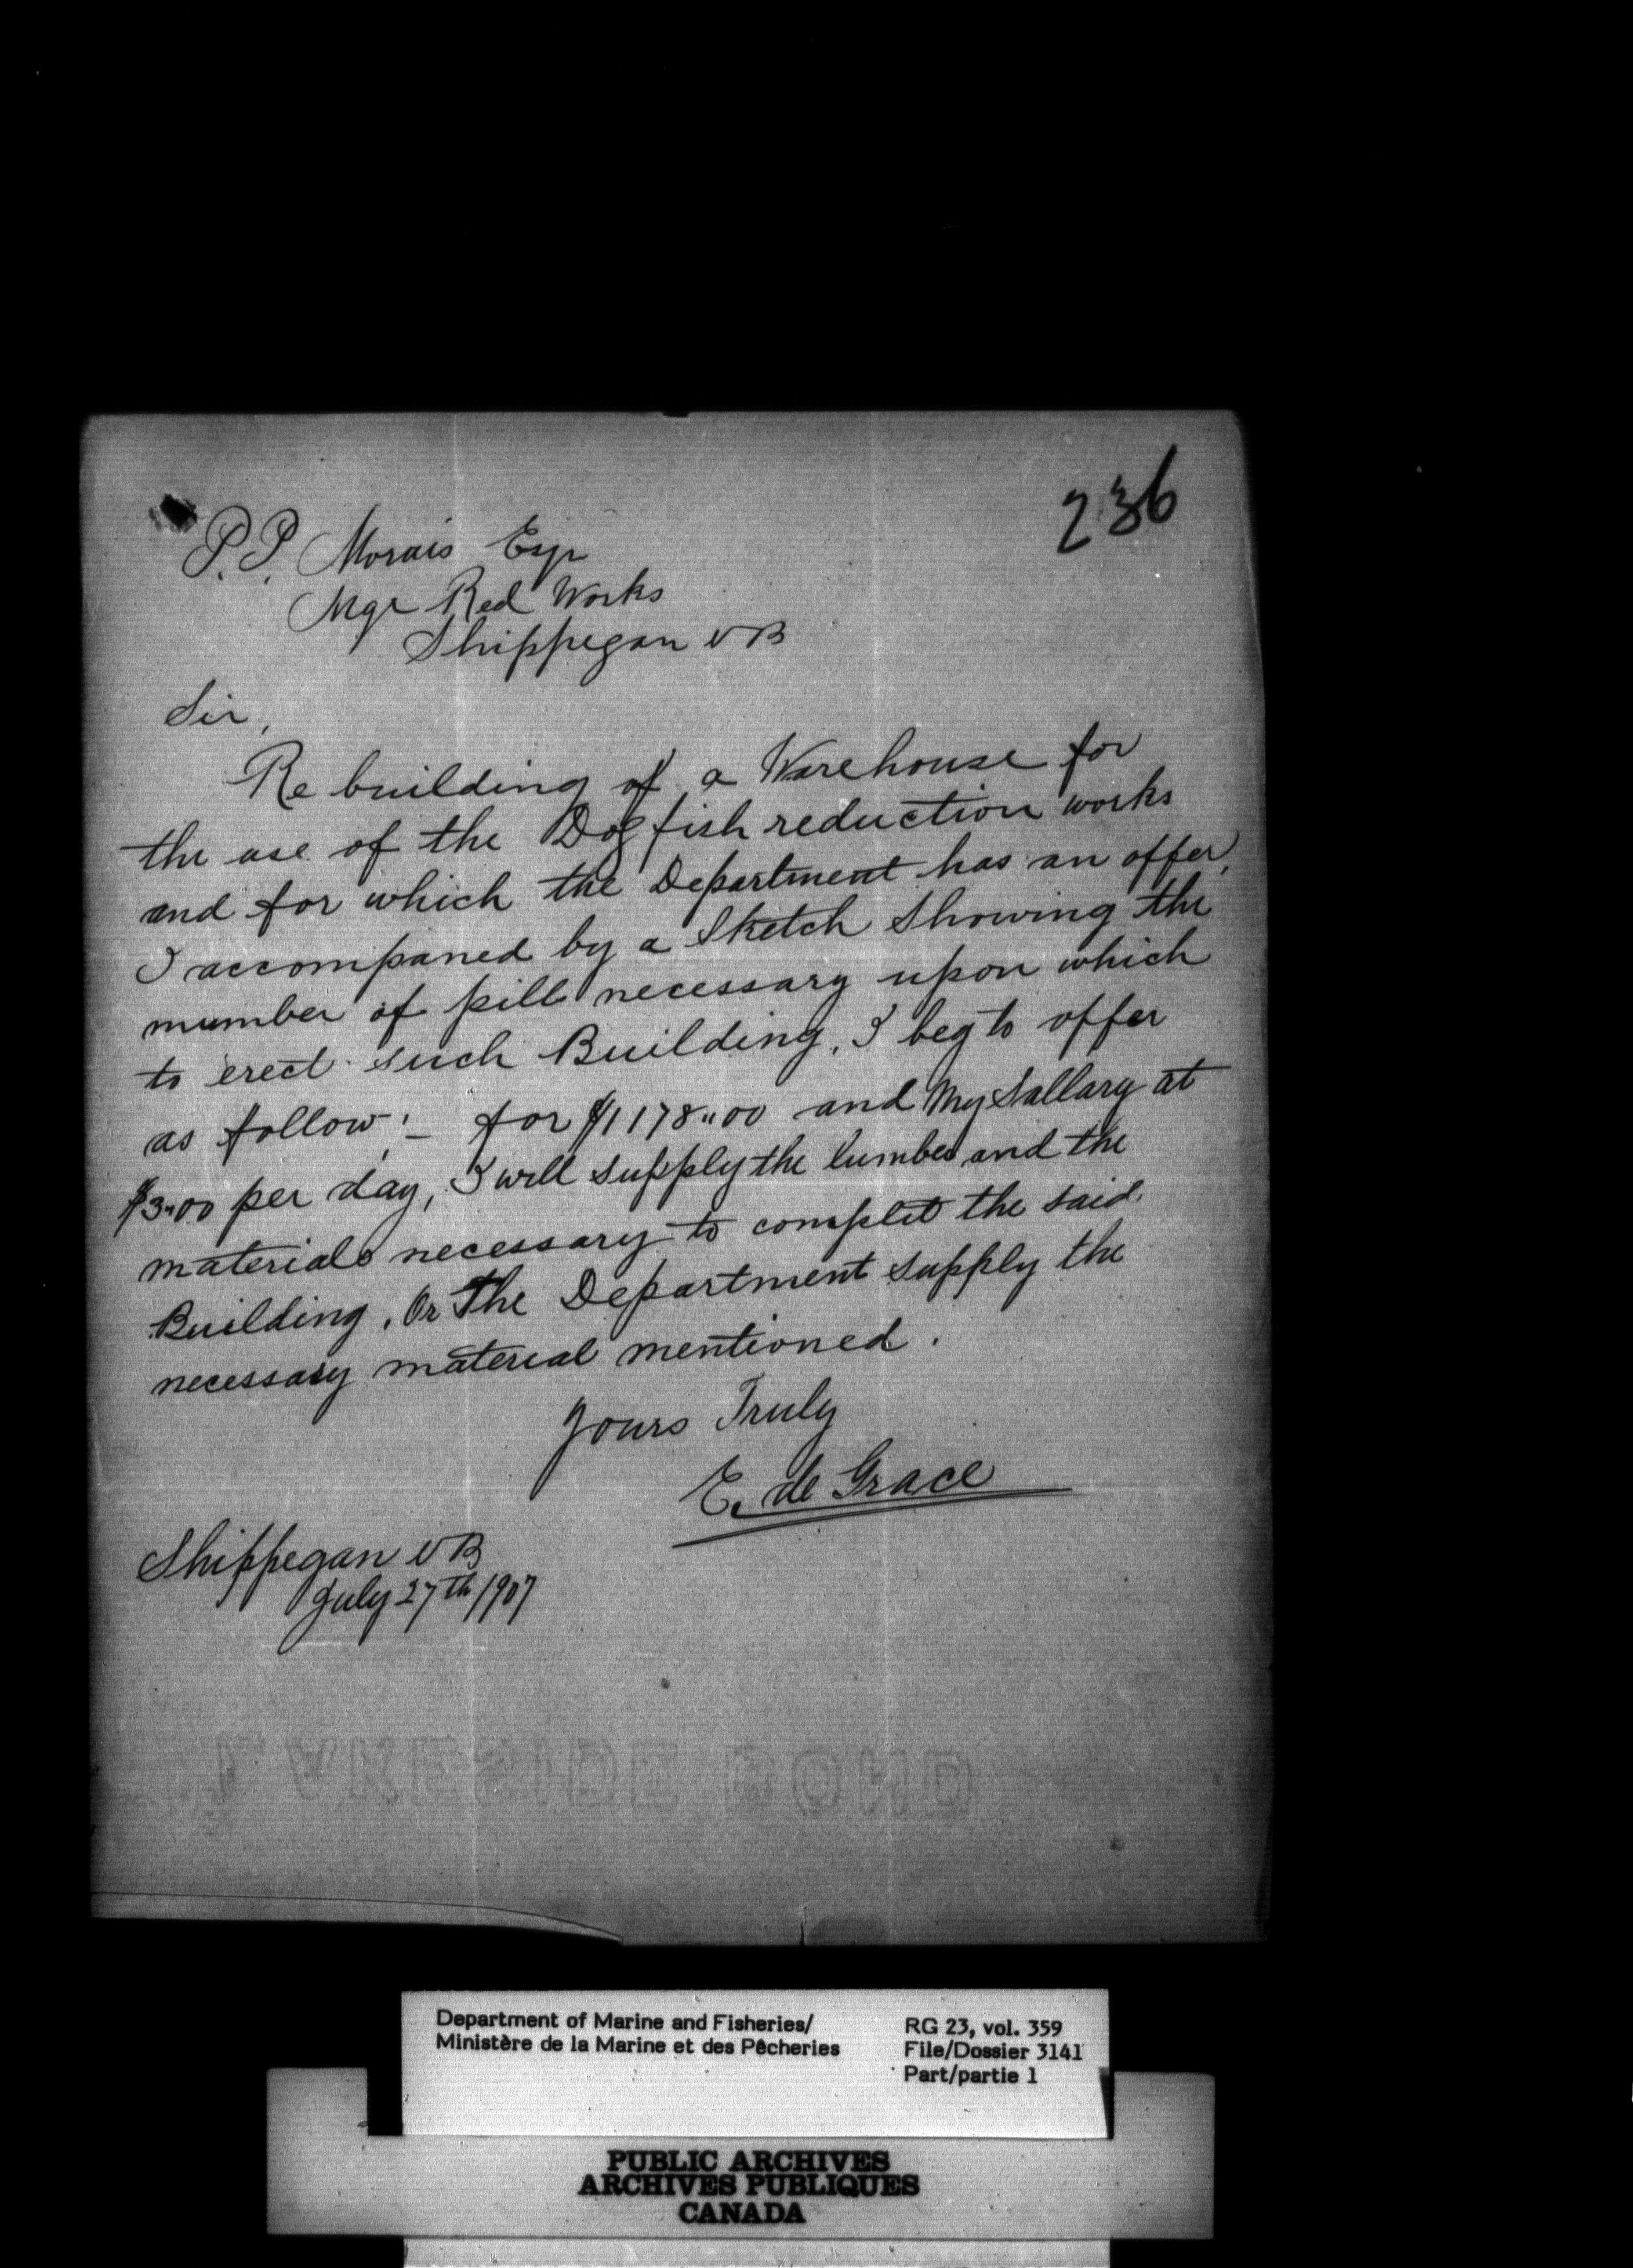 236
P.P. Morais Esqr
Mgr Red Works
Shippegan NB
Sir,
Re building of a Warehouse for
the use of the Dog fish reduction works
and for which the Department has an offer,
I accompaned by a Sketch Showing the
number of pill necessary upon which
to erect such Building, I beg to offer
as follow:- for $1178.00 and My Sallary at
$3.00 per day, I will supply the lumber and the
materials necessary to complet the said
Building, Or The Department supply the
necessary material mentioned.
Yours Truly
E. de Grace
Shippegan NB
July 27th 1907
LAKESIDE BOND
Department of Marine and Fisheries/
Ministère de la Marine et des Pêcheries
RG 23, vol. 359
File/Dossier 3141
Part/partie 1
PUBLIC ARCHIVES
ARCHIVES PUBLIQUES
CANADA